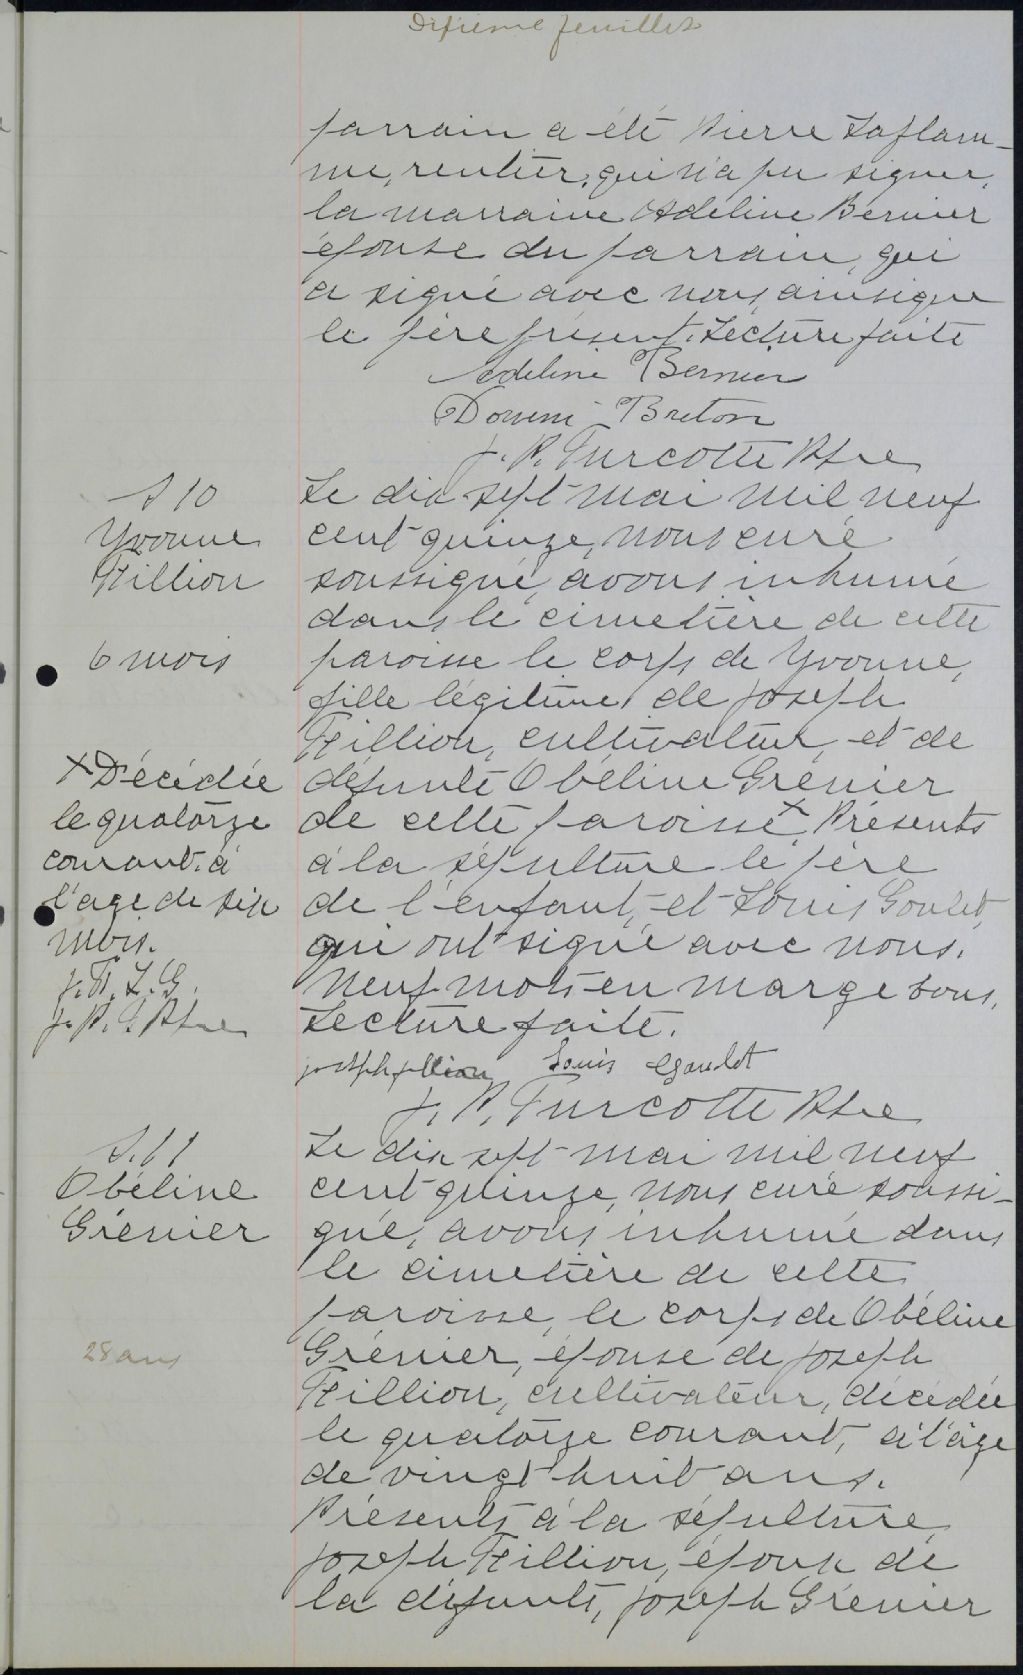 Dixième feuillet
parrain a été Pierre Laflam-
me, rentier, qui n'a pu signer,
la marraine Adéline Bernier
épouse du parrain, qui
a signé avec nous, ainsique
le père présent. Lecture faite
Adeline Bernier
Breton
J. P. Turcotte Ptre
S 10
Yvonne
Fillion
6 mois
Le dix sept mai mil neuf
cent quinze, nous curé
soussigné, avons inhumé
dans le cimetière de cette
paroisse le corps de Yvonne,
fille légitime de Joseph
Fillion, cultivateur, et de
défunte Obéline Grénier
de cette paroisse x Présents
à la sépulture le père
de l'enfant, et Louis Goulet,
qui ont signé avec nous.
Neuf mots en marge bons.
Lecture faite.
x Décédée
le quatorze
courant à
l'age de six
mois.
J. F. L. G.
J. P. T. Ptre
joseph fillion Louis Goulet
J. P. Turcotte Ptre
S. 11
Obéline
Grénier
28 ans
Le dix sept mai mil neuf
cent quinze, nous curé soussi-
gné, avons inhumé dans
le cimetière de cette
paroisse, le corps de Obéline
Grénier, épouse de Joseph
Fillion, cultivateur, décédée
le quatorze courant, à l'âge
de vingt huit ans.
Présents à la sépulture
Joseph Fillion, époux de
la défunte, Joseph Grénier